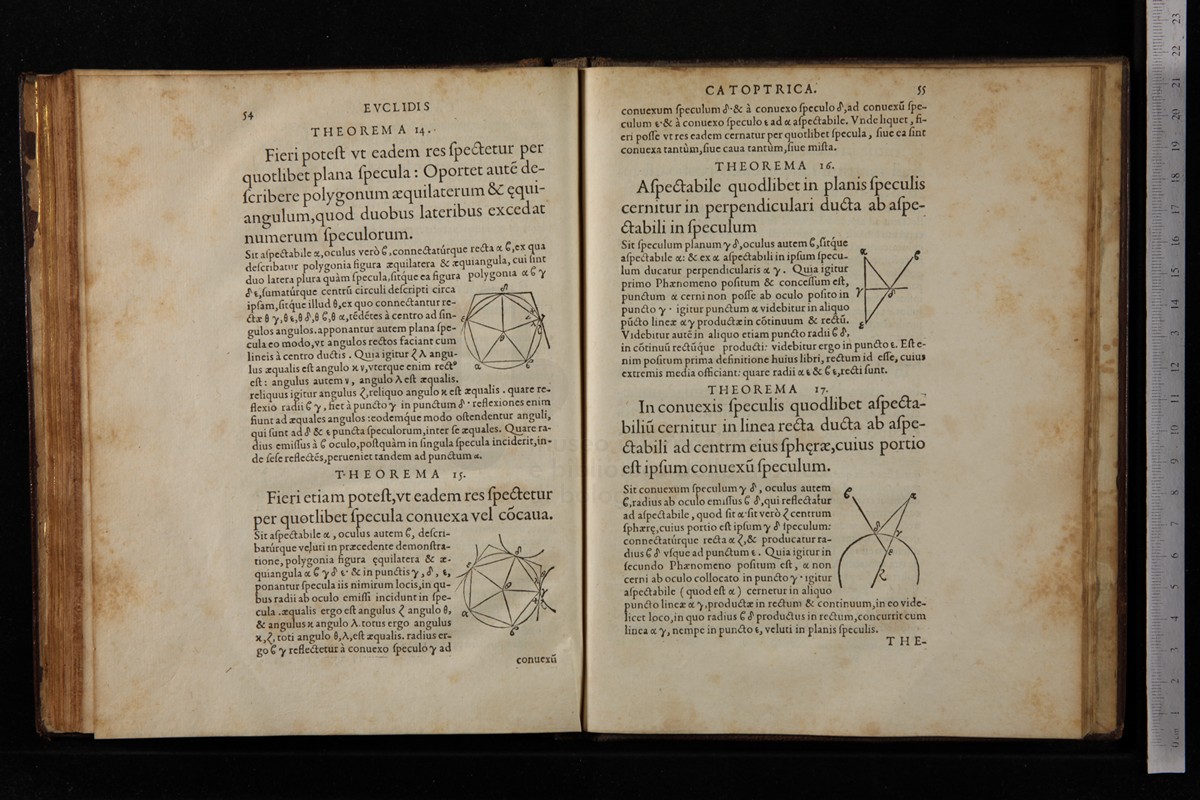 54
EVCLIDIS
THEOREMA 14.
Fieri poteſt vt eadem res ſpectetur per
quotlibet plana ſpecula : Oportet autē de-
ſcribere polygonum æquilaterum & ęqui-
angulum,quod duobus lateribus excedat
numerum ſpeculorum.
Sit aſpectabile α,oculus verò ϐ,connectatúrque recta α ϐ,ex qua
deſcribatur polygonia figura æquilatera & æquiangula, cui ſint
duo latera plura quàm ſpecula,ſitque ea figura polygonia α ϐ γ
δ ε,ſumatúrque centrū circuli deſcripti circa
ipſam,ſitque illud θ,ex quo connectantur re-
ctæ θ γ,θ ε,θ δ,θ ϐ,θ α,tēdētes à centro ad ſin-
gulos angulos.apponantur autem plana ſpe-
cula eo modo,vt angulos rectos faciant cum
lineis à centro ductis . Quia igitur ζ λ angu-
lus æqualis eſt angulo κ ν,vterque enim rectꝰ
eſt : angulus autem ν, angulo λ eſt æqualis.
reliquus igitur angulus ζ,reliquo angulo κ eſt æqualis . quare re-
flexio radii ϐ γ, fiet à puncto γ in punctum δ · reflexiones enim
fiunt ad æquales angulos :eodemque modo oſtendentur anguli,
qui ſunt ad δ & ε puncta ſpeculorum,inter ſe æquales. Quare ra-
dius emiſſus à ϐ oculo,poſtquàm in ſingula ſpecula inciderit,in-
de ſeſe reflectēs,perueniet tandem ad punctum α.
THEOREMA 15.
Fieri etiam poteſt,vt eadem res ſpectetur
per quotlibet ſpecula conuexa vel cōcaua.
Sit aſpectabile α , oculus autem ϐ, deſcri-
batúrque veluti in præcedente demonſtra-
tione,polygonia figura ęquilatera & æ-
quiangula α ϐ γ δ ε· & in punctis γ , δ , ε,
ponantur ſpecula iis nimirum locis,in qu-
bus radii ab oculo emiſſi incidunt in ſpe-
cula .æqualis ergo eſt angulus ζ angulo θ,
& angulus κ angulo λ. totus ergo angulus
κ,ζ, toti angulo θ,λ,eſt æqualis. radius er-
go ϐ γ reflectetur à conuexo ſpeculo γ ad
conuexū
CATOPTRICA.
55
conuexum ſpeculum δ·& à conuexo ſpeculo δ,ad conuexū ſpe-
culum ε·& à conuexo ſpeculo ε ad α aſpectabile. Vnde liquet , fi-
eri poſſe vt res eadem cernatur per quotlibet ſpecula , ſiue ea ſint
conuexa tantùm,ſiue caua tantùm,ſiue miſta.
THEOREMA 16.
Aſpectabile quodlibet in planis ſpeculis
cernitur in perpendiculari ducta ab aſpe-
ctabili in ſpeculum
Sit ſpeculum planum γ δ,oculus autem ϐ,ſitque
aſpectabile α: & ex α aſpectabili in ipſum ſpecu-
lum ducatur perpendicularis α γ . Quia igitur
primo Phænomeno poſitum & conceſſum eſt,
punctum α cerni non poſſe ab oculo poſito in
puncto γ · igitur punctum α videbitur in aliquo
pūcto lineæ α γ productæ in cōtinuum & rectū.
Videbitur autē in aliquo etiam puncto radii ϐ δ,
in cōtinuū rectúque producti: videbitur ergo in puncto ε. Eſt e-
nim poſitum prima definitione huius libri, rectum id eſſe, cuius
extremis media officiant: quare radii α ε & ϐ ε,recti ſunt.
THEOREMA 17.
In conuexis ſpeculis quodlibet aſpecta-
biliū cernitur in linea recta ducta ab aſpe-
ctabili ad centrm eius ſphęræ,cuius portio
eſt ipſum conuexū ſpeculum.
Sit conuexum ſpeculum γ δ , oculus autem
ϐ,radius ab oculo emiſſus ϐ δ,qui reflectatur
ad aſpectabile , quod ſit α·ſit verò ζ centrum
ſphærę,cuius portio eſt ipſum γ δ ſpeculum:
connectatúrque recta α ζ,& producatur ra-
dius ϐ δ vſque ad punctum ε . Quia igitur in
ſecundo Phænomeno poſitum eſt , α non
cerni ab oculo collocato in puncto γ · igitur
aſpectabile ( quod eſt α ) cernetur in aliquo
puncto lineæ α γ,productæ in rectum & continuum,in eo vide-
licet loco,in quo radius ϐ δ productus in rectum,concurrit cum
linea α γ, nempe in puncto ε, veluti in planis ſpeculis.
THE-